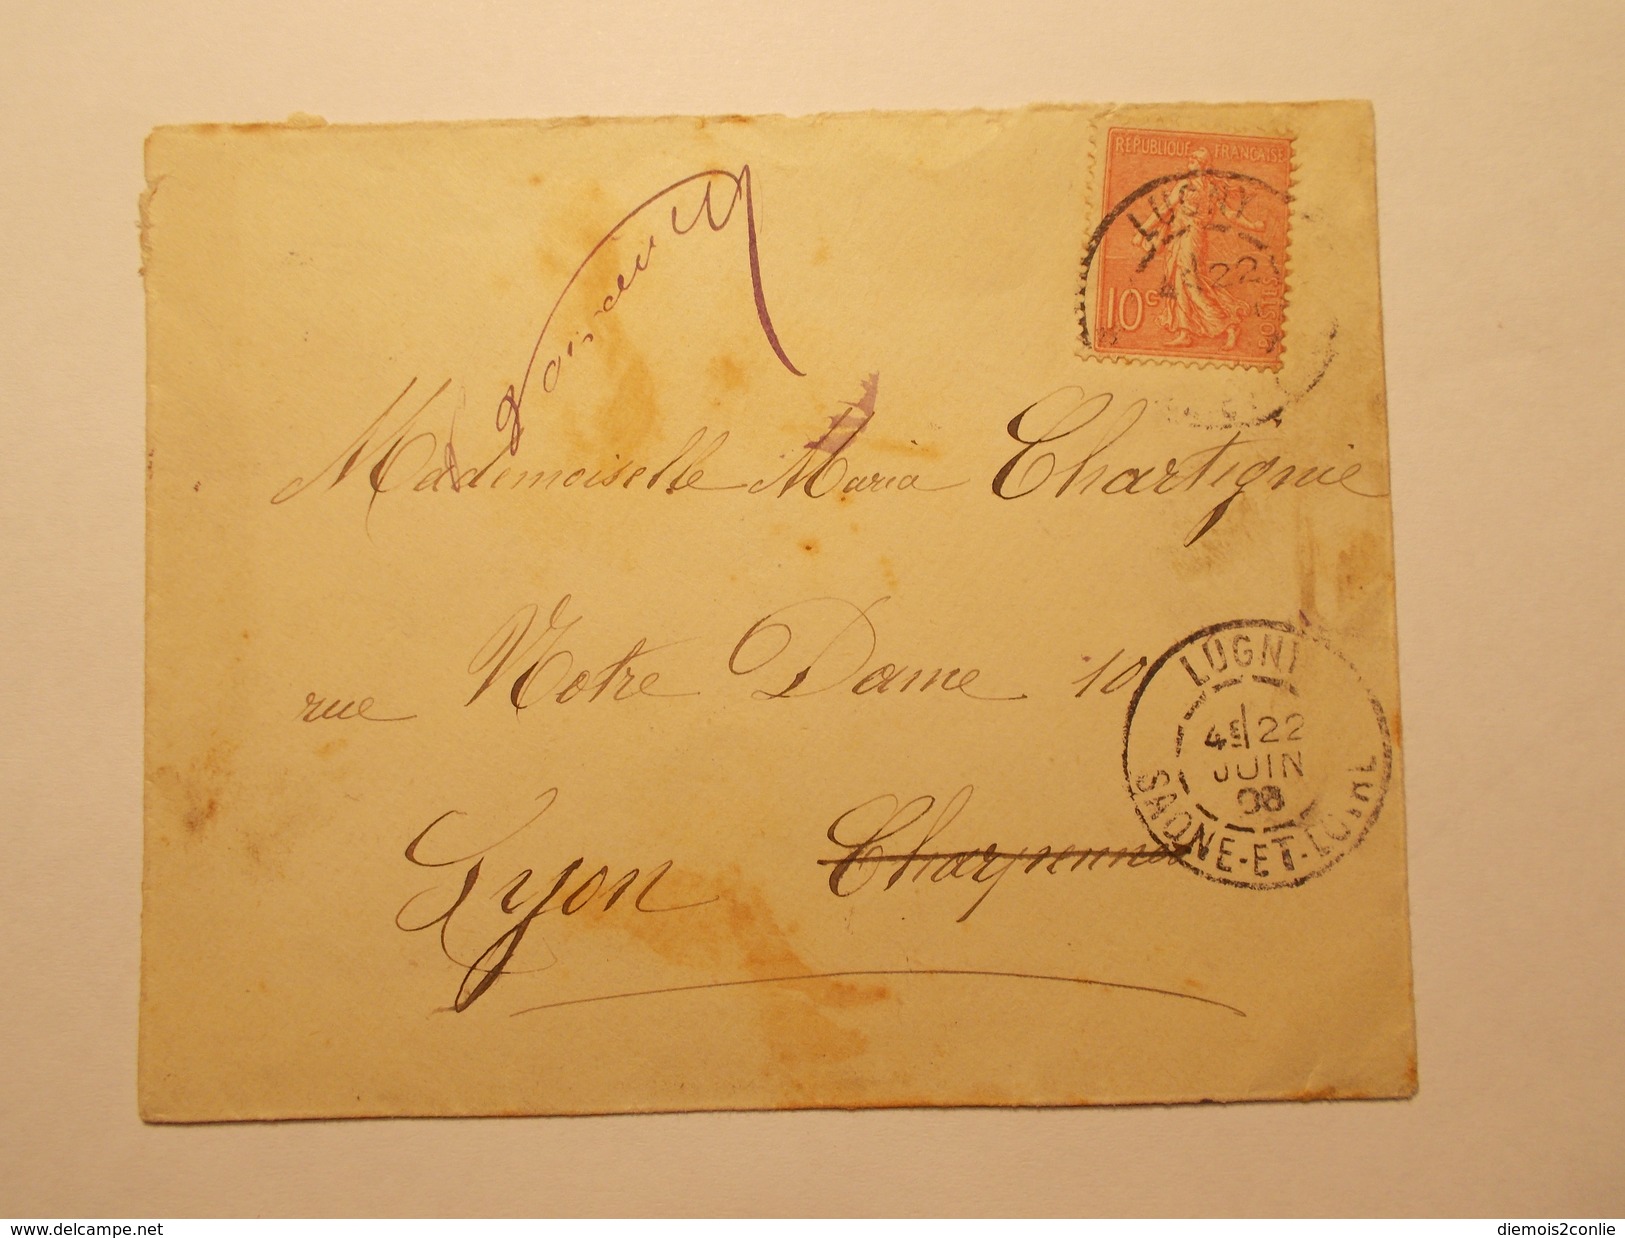 REPUBLIQUE FRANÇAISE
10c
POSTES
LUGNY
22
Mademoiselle Maria Chartignie
rue Notre Dame 10
Lyon Charpennes
LUGNY
4E 22
JUIN
08
SAONE-ET-LOIRE
www.delcampe.net
diemois2conlie